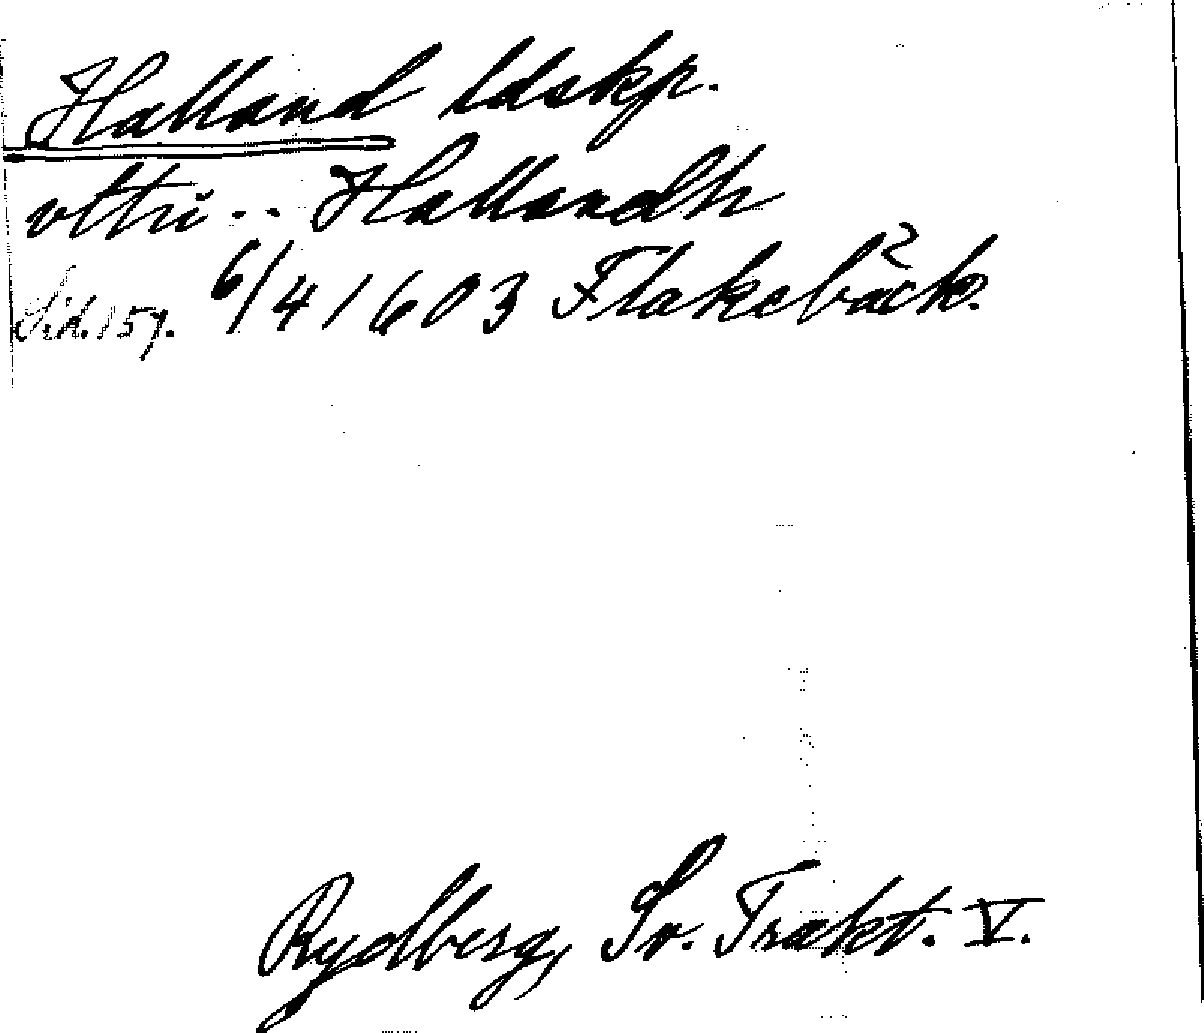 Halland ldskp.
vttri .. Hallandh
Sid. 157. 6/4 1603 Flakebäck.
Rydberg, Sv. Trakt. V.